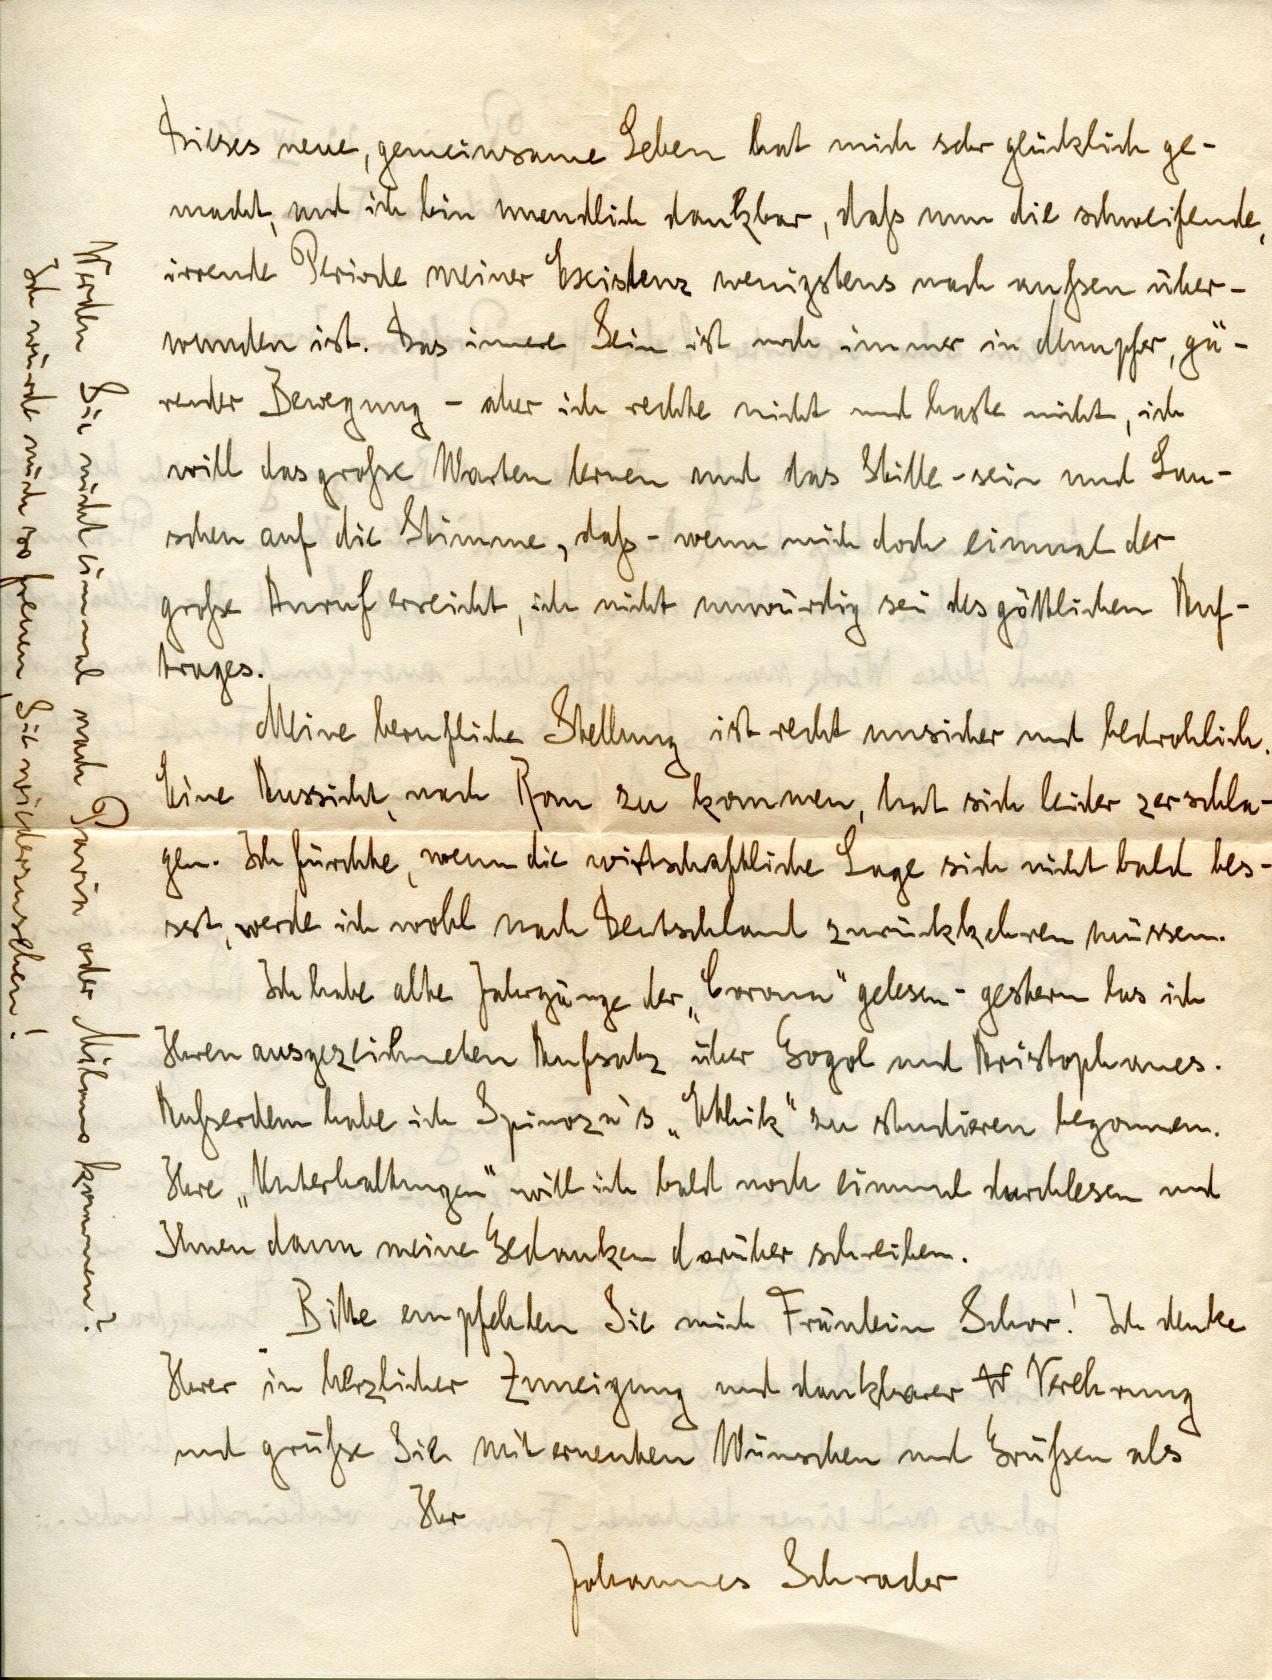 Dieses neue, gemeinsame Leben hat mich sehr glücklich ge-
macht, und ich bin unendlich dankbar, daß nun die schweifende,
irrende Periode meiner Existenz wenigstens nach außen über-
wunden ist. Das innere Sein ist noch immer in dumpfer, gä-
render Bewegung - aber ich rechte nicht und haste nicht, ich
will das große Warten lernen und das Stille-sein und Lau-
schen auf die Stimme, daß - wenn mich doch einmal der
große Anruf erreicht, ich nicht unwürdig sei des göttlichen Auf-
trages.
Meine berufliche Stellung ist recht unsicher und bedrohlich.
Eine Aussicht, nach Rom zu kommen, hat sich leider zerschla-
gen. Ich fürchte, wenn die wirtschaftliche Lage sich nicht bald bes-
sert, werde ich wohl nach Deutschland zurückkehren müssen.
Ich habe alte Jahrgänge der „Corona" gelesen - gestern las ich
Ihren ausgezeichneten Aufsatz über Gogol und Aristophanes.
Außerdem habe ich Spinoza's „Ethik" zu studieren begonnen.
Ihre „Unterhaltungen" will ich bald noch einmal durchlesen und
Ihnen dann meine Gedanken darüber schreiben.
Bitte empfehlen Sie mich Fräulein Schor! Ich denke
Ihrer in herzlicher Zuneigung und dankbarer Verehrung
und grüße Sie mit erneuten Wünschen und Grüßen als
Ihr
Johannes Schrader
Werden Sie nicht einmal nach Pavia oder Milano kommen?
Ich würde mich so freuen, Sie wiederzusehen!